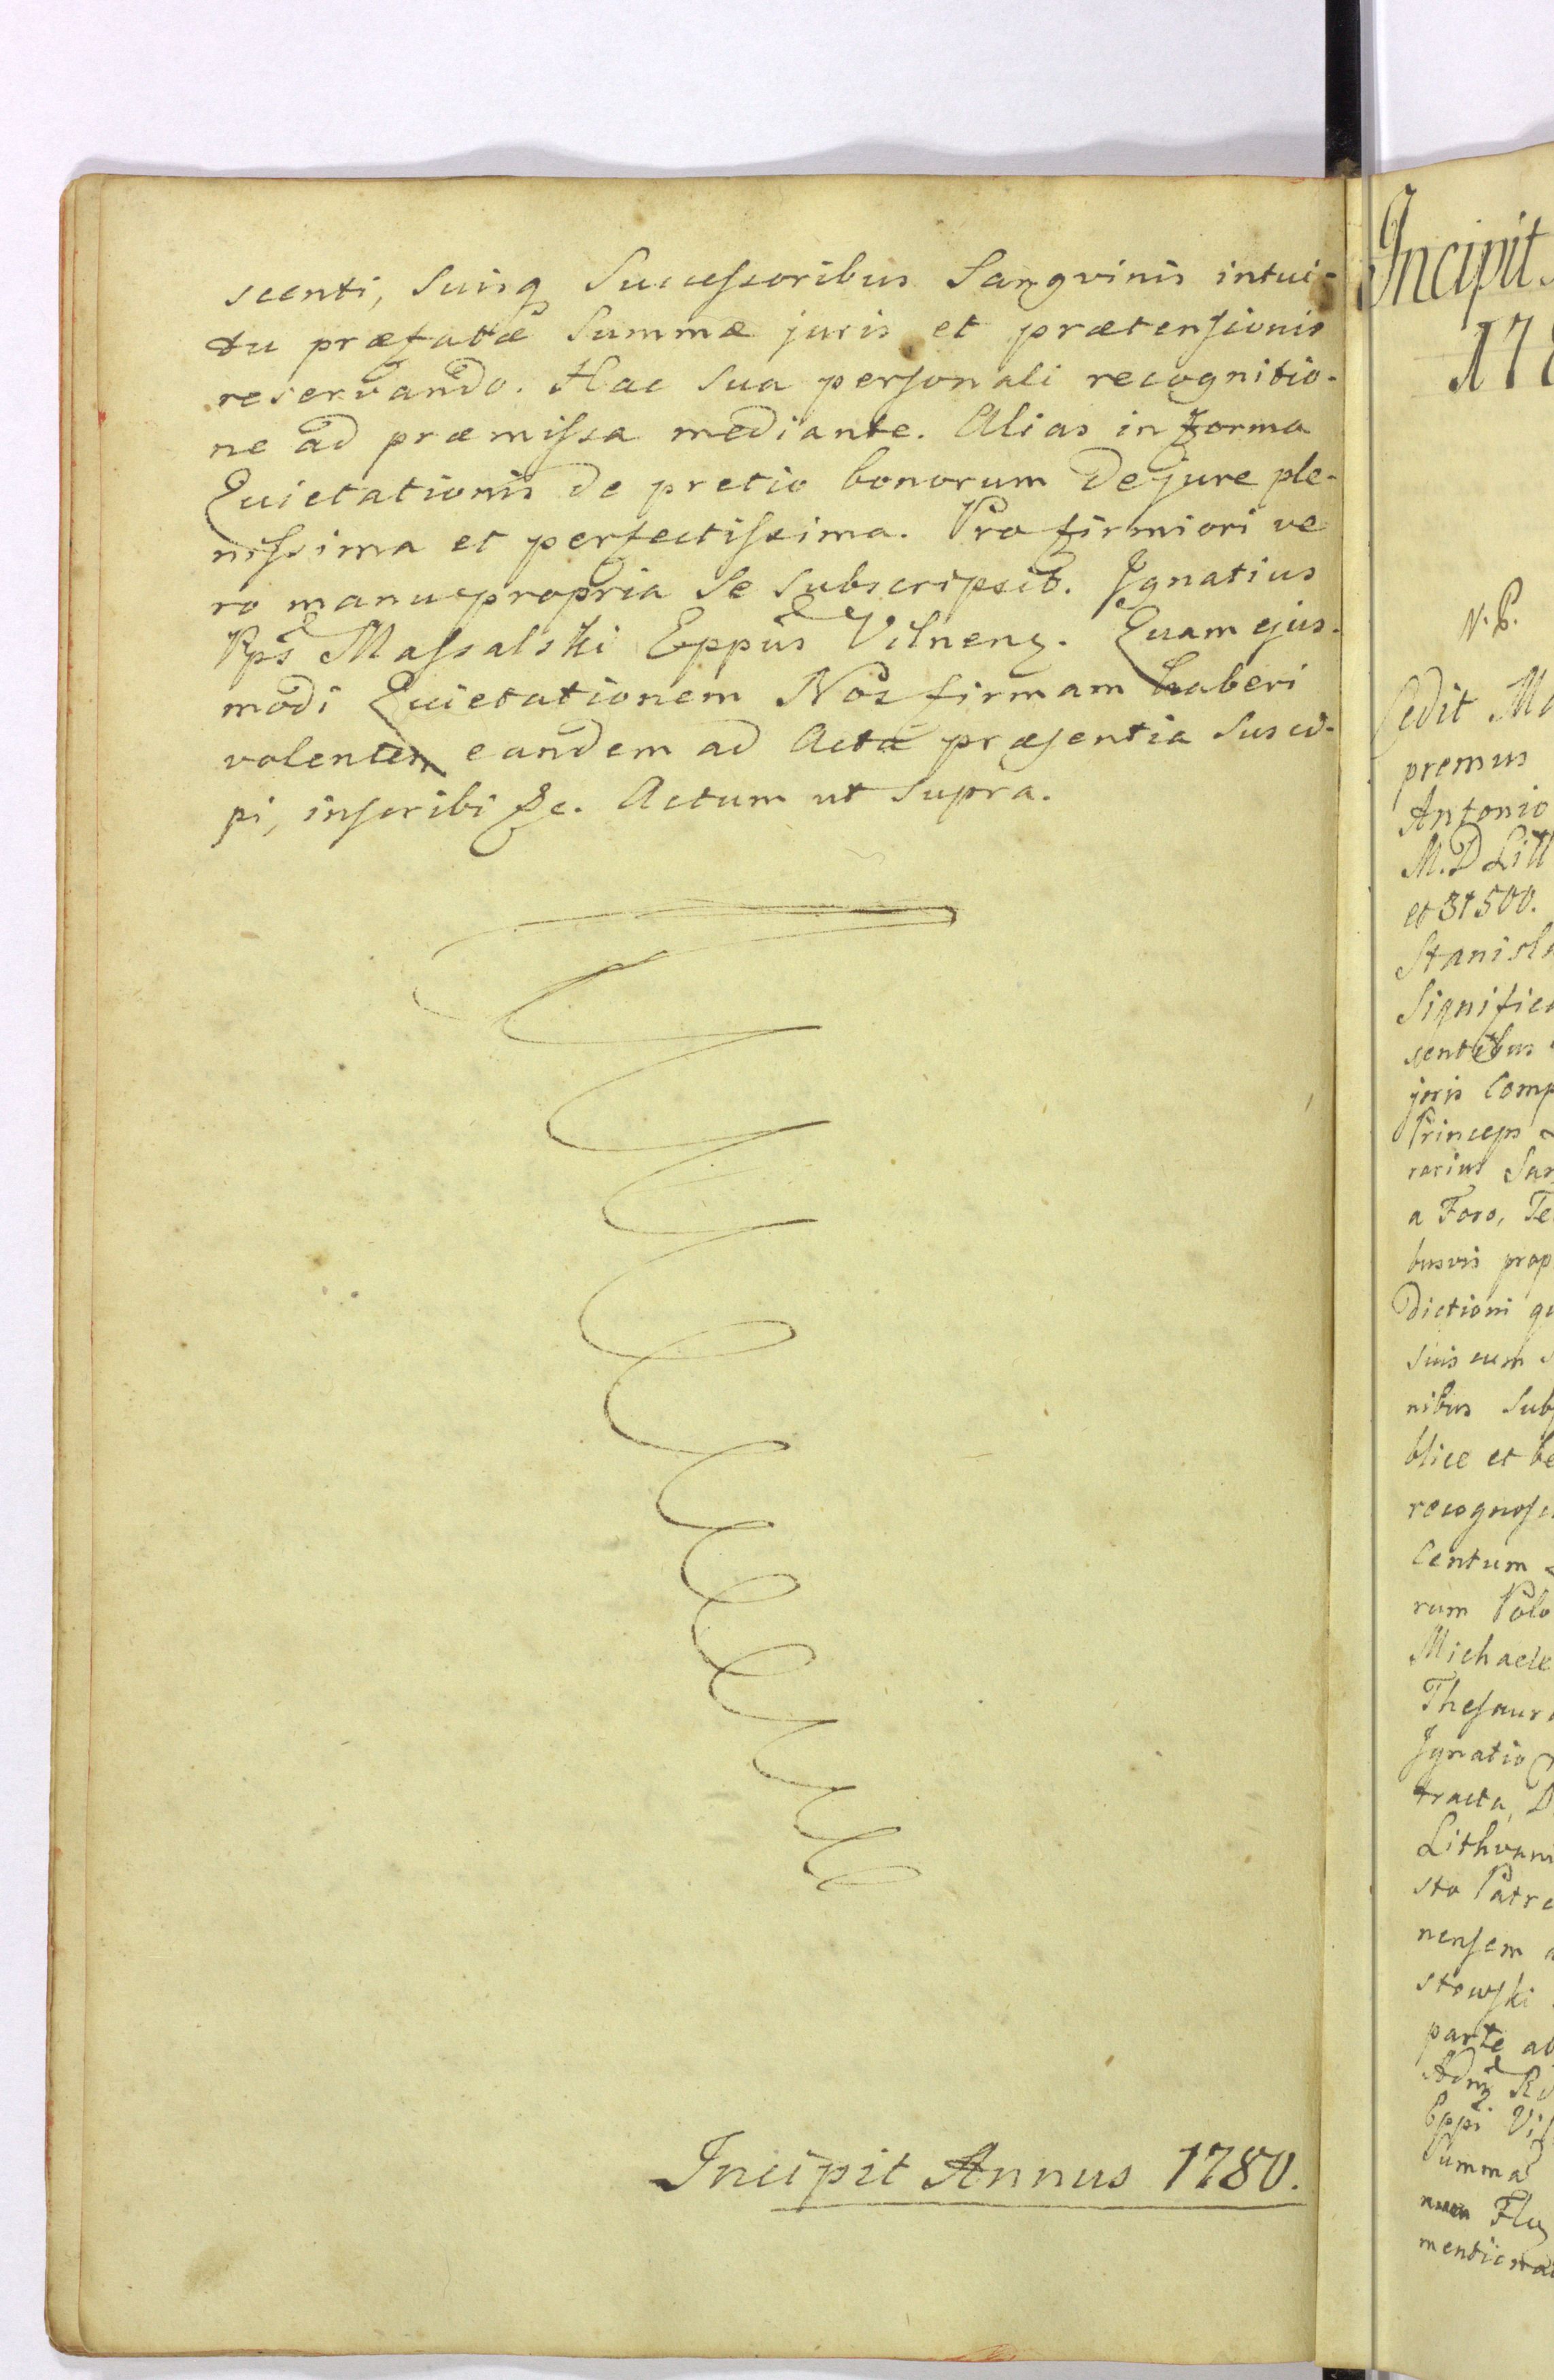 scenti, Suisq Successoribus Sangvinis intui-
tu præfatæ Summæ juris et prætensionis
reservando. Hac sua personali recognitio-
ne ad præmissa mediante. Alias in forma
Quietationis de pretio bonorum de jure ple-
nissima et perfectissima. Pro firmiori ve
ro manu propria Se Subscripsit. Ignatius
Pps Massalski Eppus Vilnen. Quam ejus-
modi Quietationem Nos firmam haberi
volentes eandem ad Acta præsentia Susci-
pi, inscribi &c. Actum ut Supra.
Incipit Annus 1780.
Incipit
178
N.B.
Cedit
premus
Antonio
M.D Litt
et 31500.
Stanisl
Signific
sentibus
joris Comp
Princeps
rarius San
a Foro, Te
busvis prop
Dictioni qu
Suis cum
nibus Sub
blice et be
recognosc
Centum
rum Polo
Michaele
Thesaur
Ignatio
tracta, D
Lithvani
sto Patre
nensem
stowski
parte
Eppi Vil
Summa
Flo
mentiona